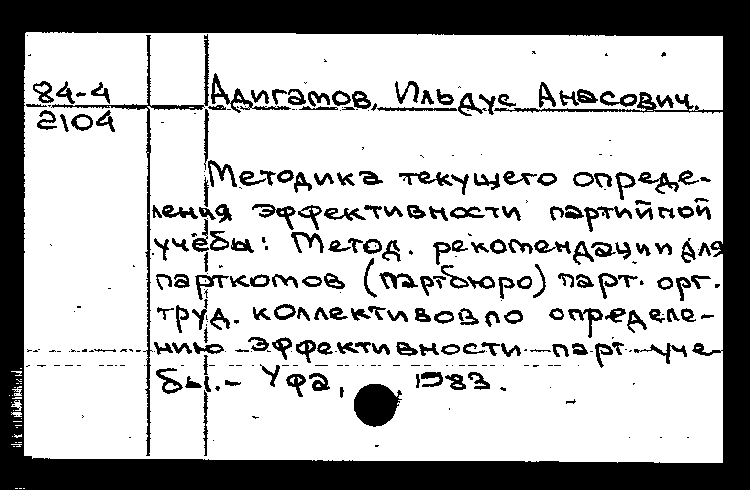 84-4
2104
Адигамов, Ильдус Анасович.
Методика текущего опреде-
ления эффективности партийной
учёбы: Метод. рекомендации для
парткомов (партбюро) парт. орг.
труд. коллективов по определе-
нию эффективности парт уче-
бы.- Уфа, 1983.